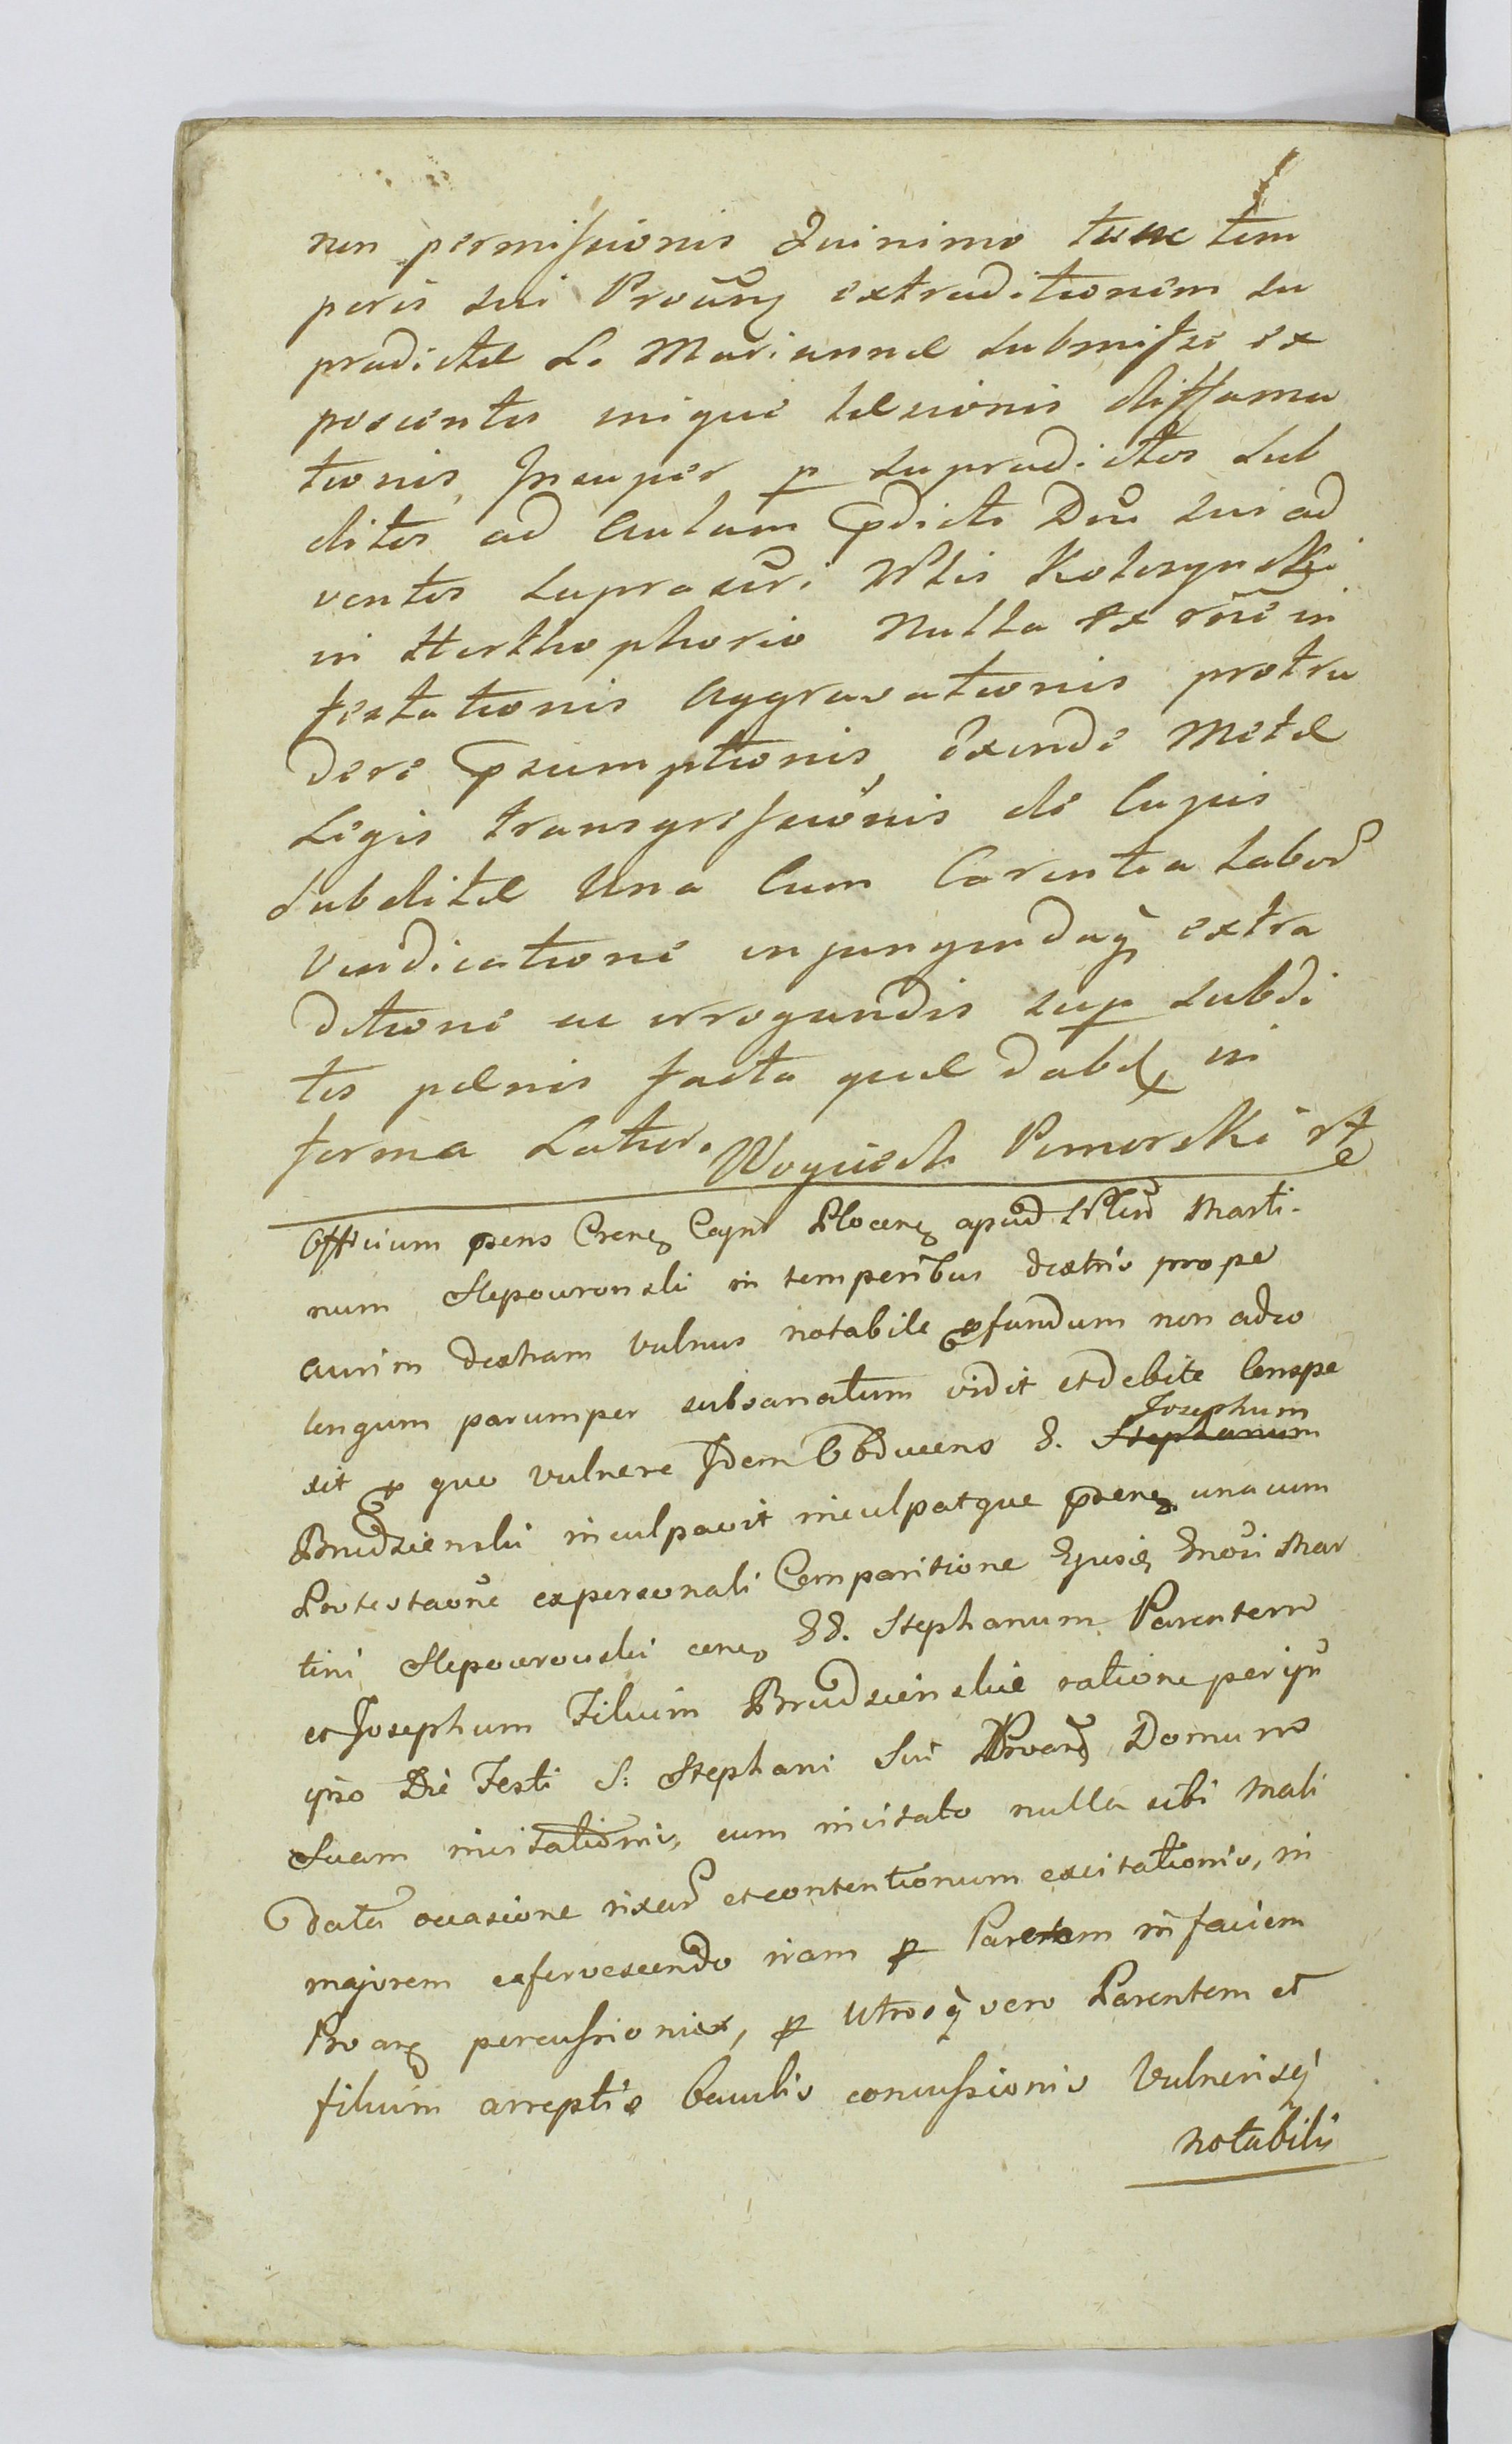 non permissionis Quinimo tunc tem
poris sui Proũng extraditionem su
pradictæ L. Mariannæ submisse ex
poscentis inique læsionis diffama
tionis, Insuper p supradictos sub
ditos ad Aulam pdicti Dni sui ad
ventos suprascri Nblis Kolczynski
in Horthophorio Nulla ex rñe in
festationis Aggravationis protru
dere psumptionis, exinde Metæ
Legis transgressionis de Cujus
subditæ Una Cum Carentia labor
Vendicatione injungendaq extra
ditione ac irrogandis sup subdi
tis pænis facta quæ dabit in
forma Latior. Woyciech Pomorski
Officium pens Crens Capnt Plocens apud Nblem Marti-
num Slepowronski in temporibus dextris prope
aurim dextram vulnus notabile pfundum non adeo
longum parumper subsanatum vidit et debite Conspe
xit p quo vulnere Idem Obducens G. Stephanum Josephum
Brudzienski inculpavit inculpatque psens unacum
Protestaone ex personali Comparitione Ejusd Gnosi Mar
tini Slepowronski cons GG. Stephanum Parentem
et Josephum Filium Brudzienskie ratione per ipsũ
ipso Die Festi S: Stephani Sui Proang Domum
Suam invitationis, eum invitato nulla sibi mali
data occasione rixar et contentionum excitationis, in
majorem exfervescendo iram p Parentem in faciem
Proang percussionis, p Utrosq vero Parentem et
filium arreptis baculis concussionis Vulnerisq
notabilis